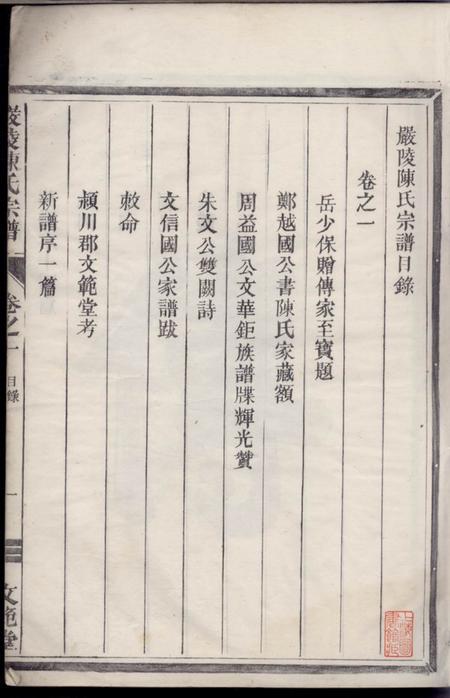 嚴陵陳氏宗譜目錄
卷之一
岳少保贈傳家至寶題
鄭越國公書陳氏家藏額
周益國公文華鉅族譜牒輝光贊
朱文公雙闕詩
文信國公家譜跋
敕命
潁川郡文範堂考
新譜序一篇
嚴陵陳氏宗譜
卷之一
目錄
一
文範堂